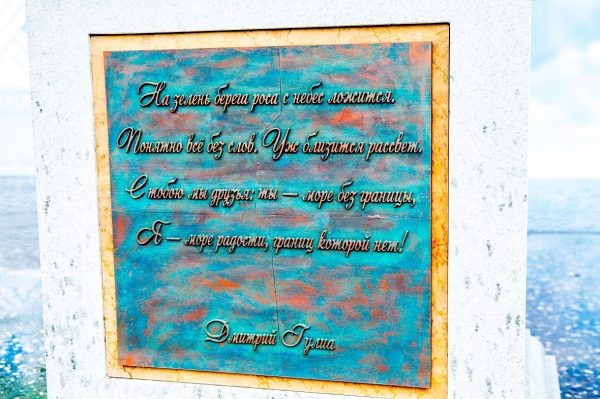 На зелень берега роса с небес ложится.
Понятно всё без слов. Уж близится рассвет.
С тобою мы друзья: ты — море без границы,
Я — море радости, границ которой нет!
Дмитрий Гулиа